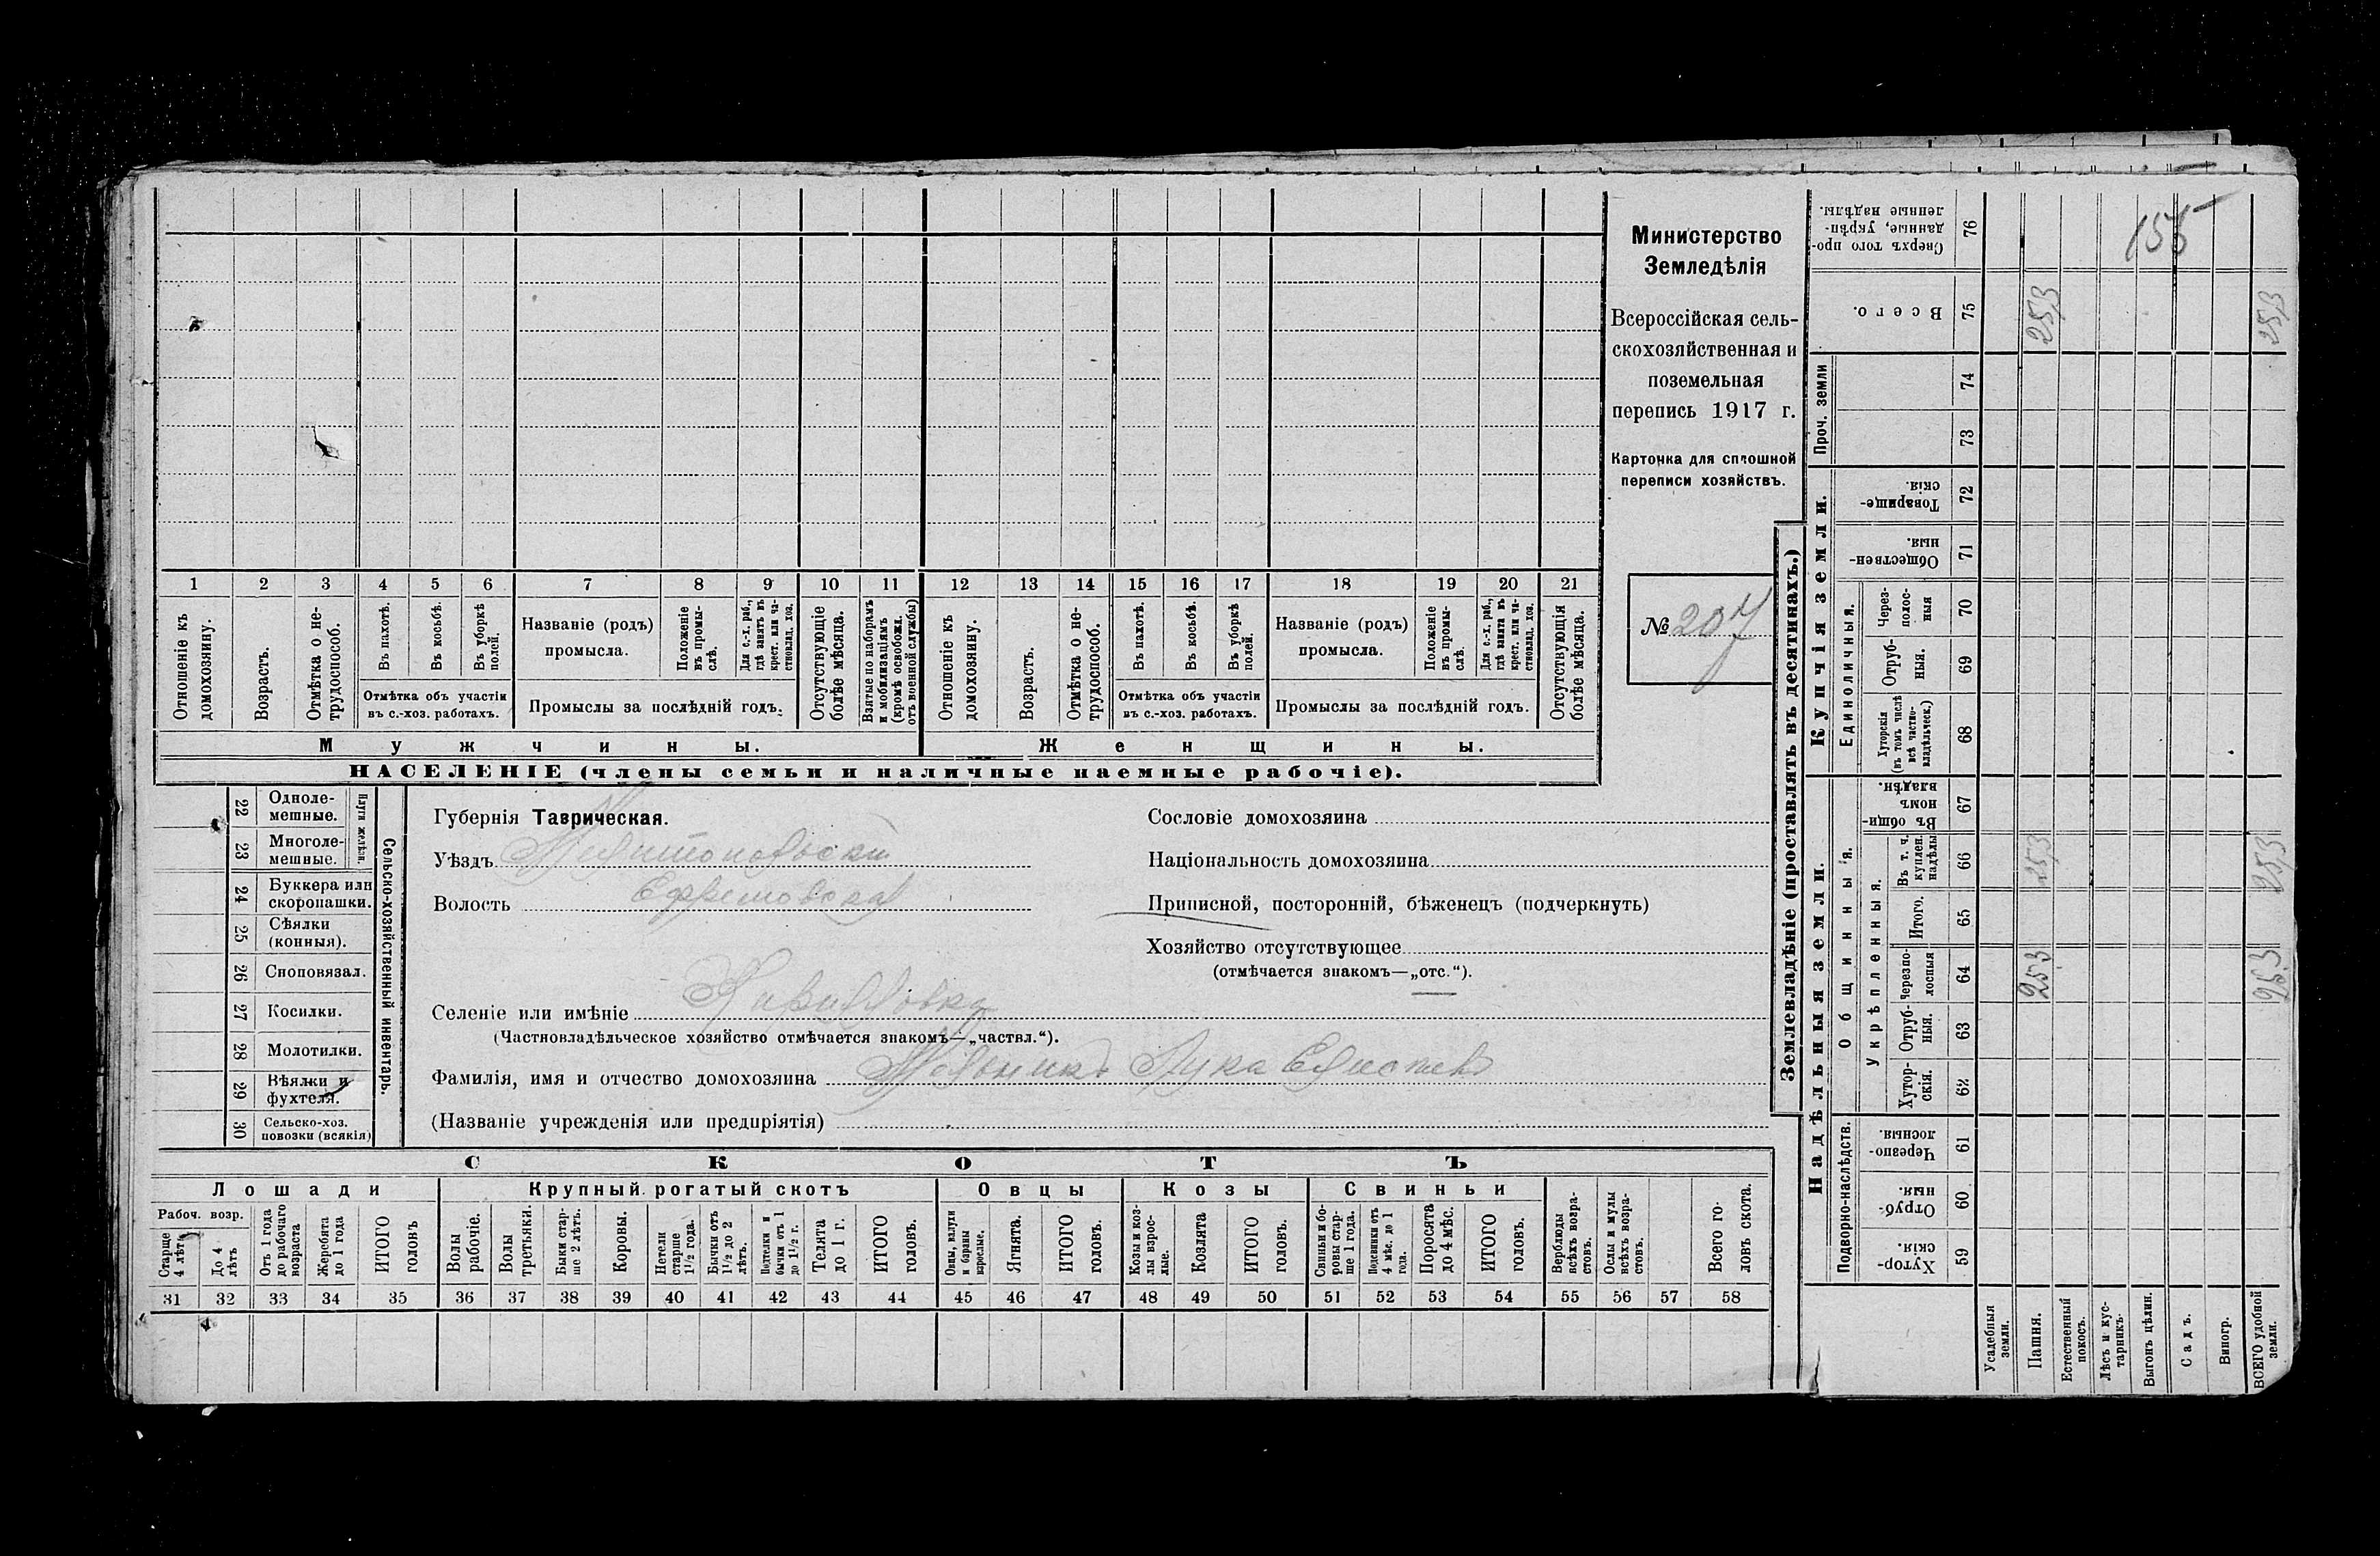 Министерство
Земледѣлія
Всероссійская сель-
скохозяйственная и
поземельная
перепись 1917 г.
Карточка для сплошной
переписи хозяйствъ.
№ 207
155
1 2 3 4 5 6 7 8 9 10 11 12 13 14 15 16 17 18 19 20 21
Отношеніе къ домохозяину.
Возрастъ.
Отмѣтка о не-трудоспособ.
Въ пахотѣ.
Въ косьбѣ.
Въ уборкѣ полей.
Отмѣтка объ участіи
въ с.-хоз. работахъ.
Названіе (родъ)
промысла.
Положеніе въ промы-слѣ.
Для с.-х. раб., гдѣ занятъ въ крест. или ча-стновлад. хоз.
Промыслы за послѣдній годъ.
Отсутствующіе болѣе мѣсяца.
Взятые по наборамъ и мобилизаціямъ (кромѣ освобожд. отъ военной службы)
Отношеніе къ домохозяину.
Возрастъ.
Отмѣтка о не-трудоспособ.
Въ пахотѣ.
Въ косьбѣ.
Въ уборкѣ полей.
Отмѣтка объ участіи
въ с.-хоз. работахъ.
Названіе (родъ)
промысла.
Положеніе въ промы-слѣ.
Для с.-х. раб., гдѣ занята въ крест. или ча-стновлад. хоз.
Промыслы за послѣдній годъ.
Отсутствующія болѣе мѣсяца.
Мужчины.
Женщины.
НАСЕЛЕНІЕ (члены семьи и наличные наемные рабочіе).
22 Одноле-мешные.
23 Многоле-мешные.
Плуги желѣзн.
24 Буккера или скоропашки.
25 Сѣялки (конныя).
26 Сноповязал.
27 Косилки.
28 Молотилки.
29 Вѣялки и фухтеля.
30 Сельско-хоз. повозки (всякія)
Сельско-хозяйственный инвентарь.
Губернія Таврическая.
Уѣздъ Мелитопольскій
Волость Ефремовская
Селеніе или имѣніе Кирилловка
(Частновладѣльческое хозяйство отмѣчается знакомъ—„частвл.“).
Фамилія, имя и отчество домохозяина Мельникъ Лука
(Названіе учрежденія или предпріятія)
Сословіе домохозяина
Національность домохозяина
Приписной, посторонній, бѣженецъ (подчеркнуть)
Хозяйство отсутствующее
(отмѣчается знакомъ—„отс.“).
СКОТЪ
Лошади
Крупный рогатый скотъ
Овцы
Козы
Свиньи
Рабоч. возр.
Старше 4 лѣтъ
До 4 лѣтъ
Отъ 1 года до рабочаго возраста
Жеребята до 1 года
ИТОГО головъ
Волы рабочіе.
Волы третьяки.
Быки стар-ше 2 лѣтъ.
Коровы.
Нетели старше 1½ года.
Бычки отъ 1½ до 2 лѣтъ.
Подтелки и бычки отъ 1 до 1½ г.
Телята до 1 г.
ИТОГО головъ.
Овцы, валухи и бараны взрослые.
Ягнята.
ИТОГО головъ.
Козы и коз-лы взрос-лые.
Козлята
ИТОГО головъ.
Свиньи и бо-ровы стар-ше 1 года.
Подсвинки отъ 4 мѣс. до 1 года.
Поросята до 4 мѣс.
ИТОГО головъ.
Верблюды всѣхъ возра-стовъ.
Ослы и мулы всѣхъ возра-стовъ.
Всего го-ловъ скота.
31 32 33 34 35 36 37 38 39 40 41 42 43 44 45 46 47 48 49 50 51 52 53 54 55 56 57 58
Землевладѣніе (проставлять въ десятинахъ.)
Сверхъ того про-данные, укрѣп-ленные надѣлы. 76
Всего. 75 253 253
Проч. земли 74
73
Купчія земли.
Товарище-скія. 72
Обществен-ныя. 71
Единоличныя.
Через-полос-ныя 70
Отруб-ныя. 69
Хуторскія (въ томъ числѣ всѣ частно-владѣльческ.) 68
Надѣльныя земли.
Общинныя.
Въ общи-номъ владѣн. 67
Укрѣпленныя.
Въ т. ч. куплен. надѣлы 66 253 253
Итого. 65
Черезпо-лосныя 64 253 253
Отруб-ныя. 63
Хутор-скія. 62
Подворно-наслѣдств.
Черезпо-лосныя. 61
Отруб-ныя. 60
Хутор-скія. 59
Усадебныя земли.
Пашня.
Естественный покосъ.
Лѣсъ и кус-тарникъ.
Выгонъ цѣлин.
Садъ.
Виногр.
ВСЕГО удобной земли.